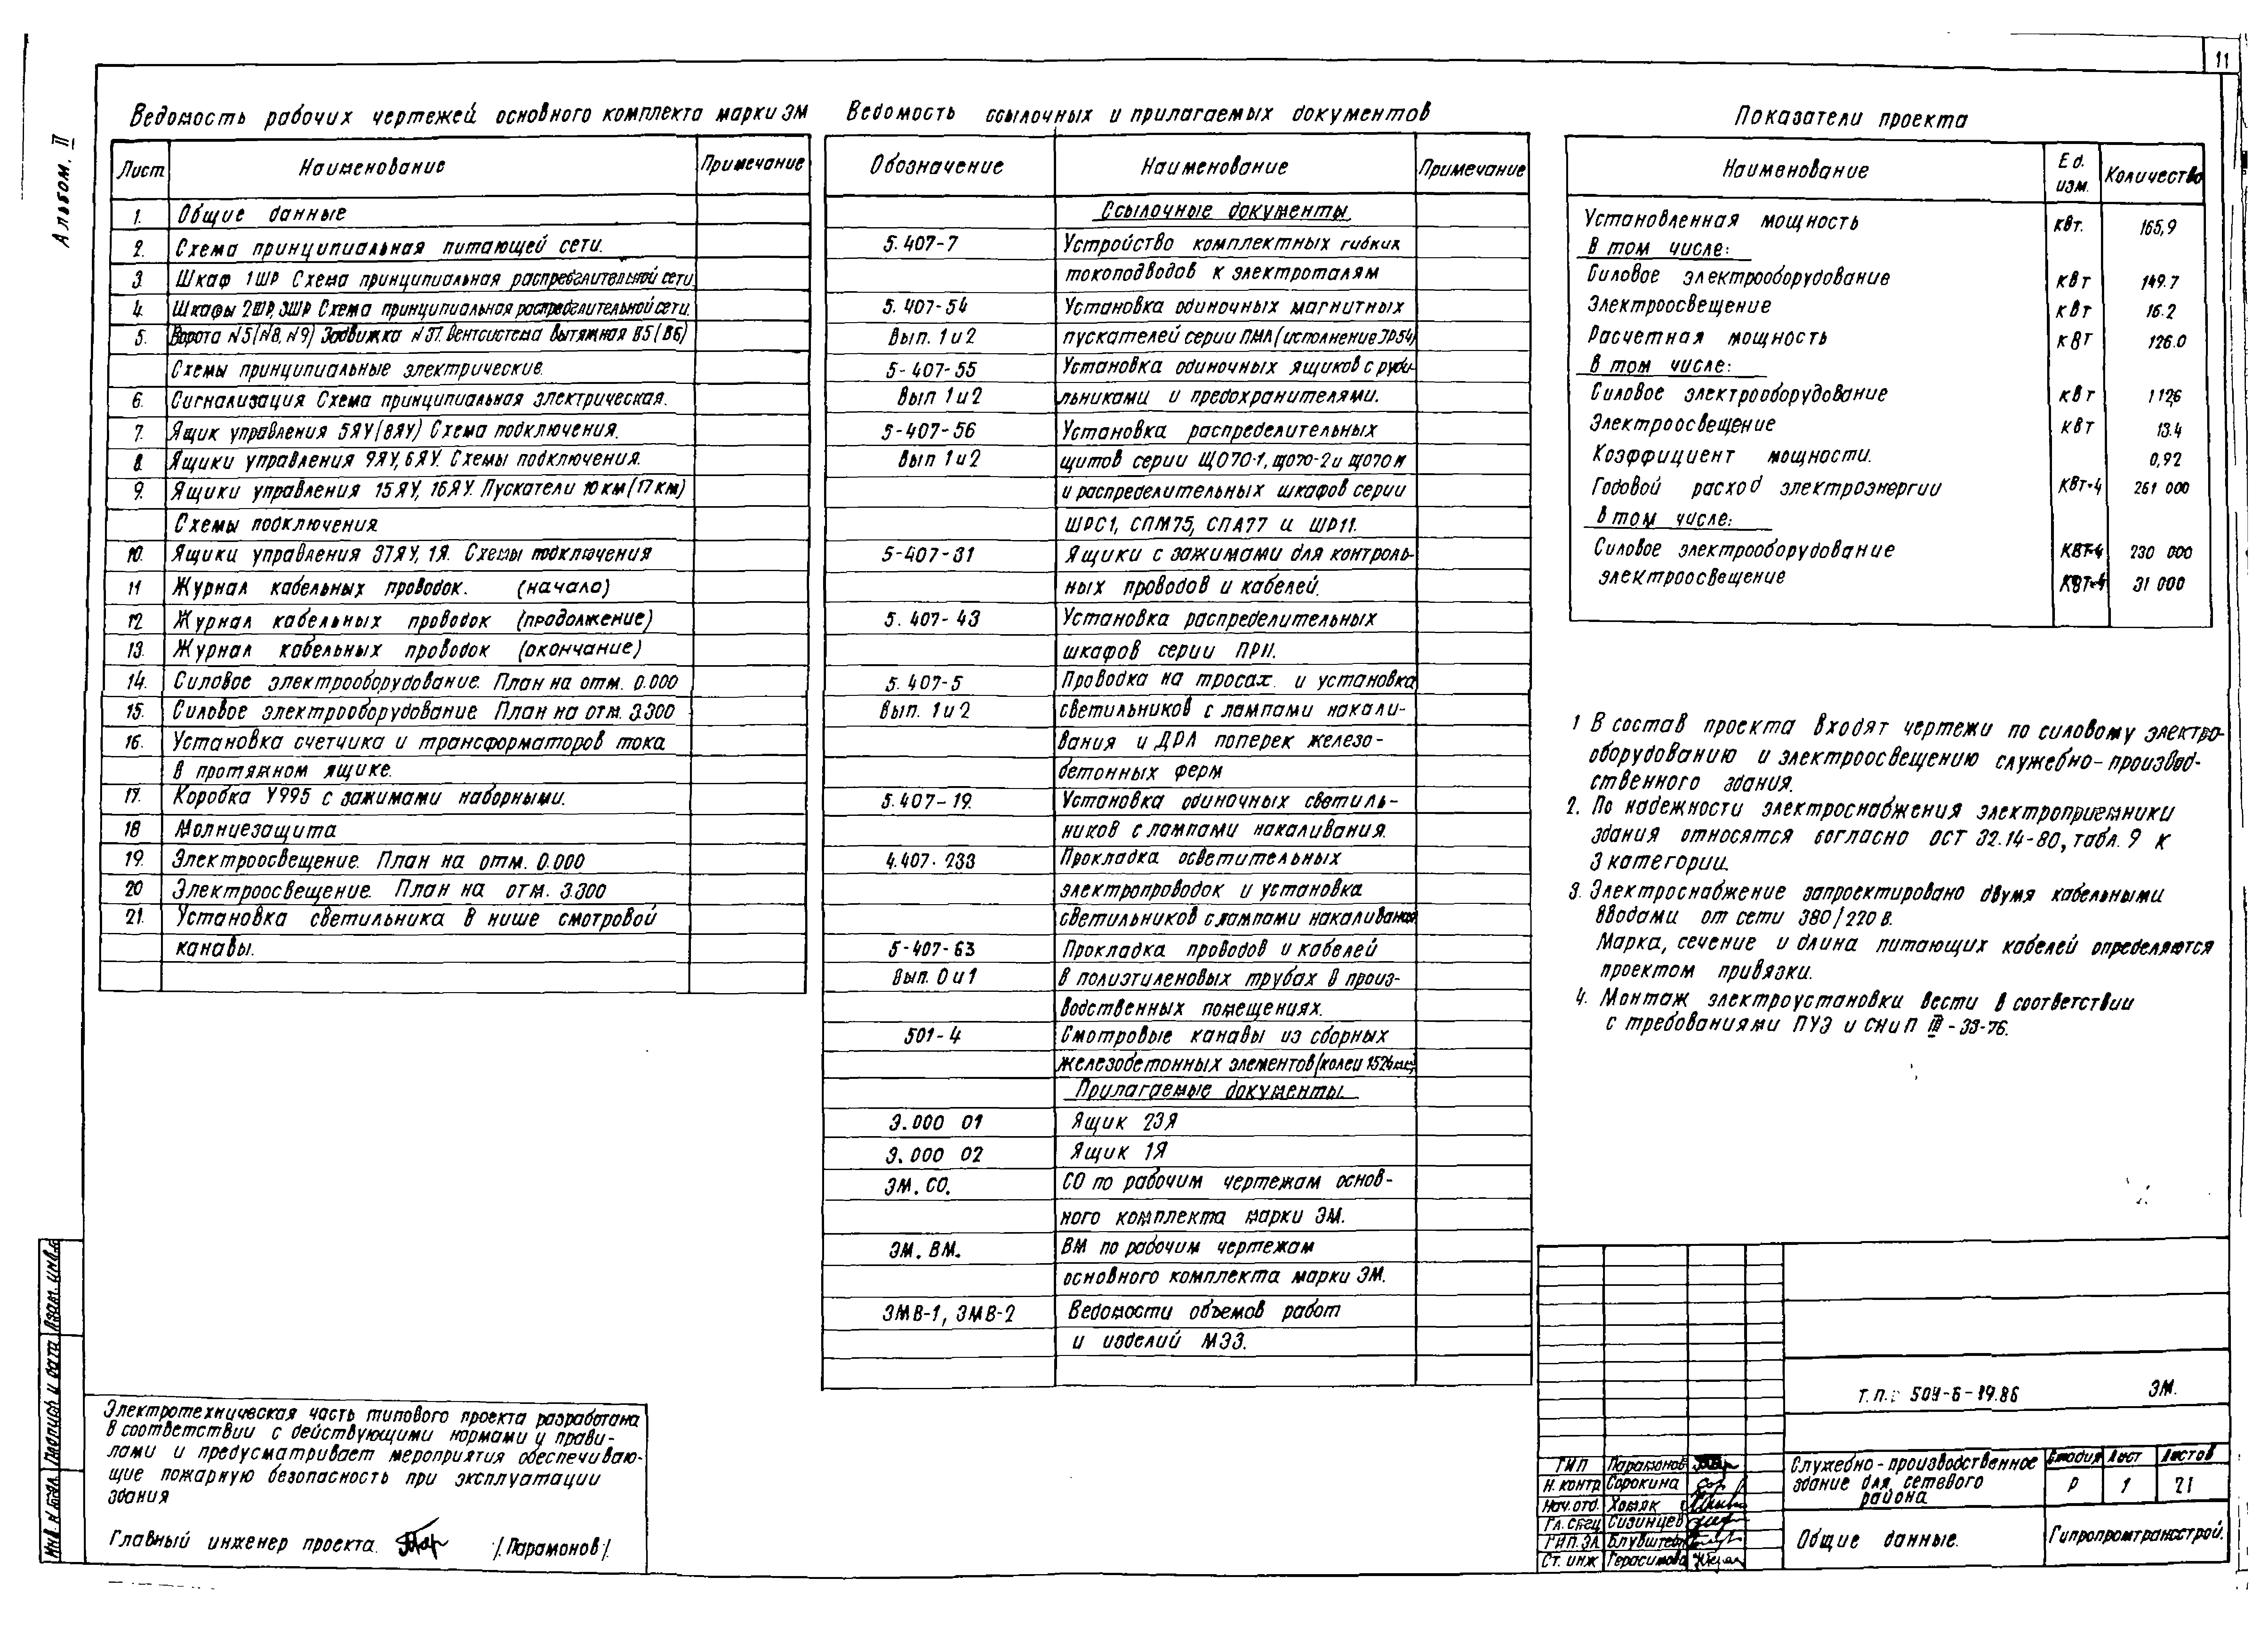 11
Альбом. II
Ведомость рабочих чертежей основного комплекта марки ЭМ
Лист Наименование Примечание
1. Общие данные
2. Схема принципиальная питающей сети.
3. Шкаф 1ШР Схема принципиальная распределительной сети
4. Шкафы 2ШР, 3ШР Схема принципиальная распределительной сети.
5. Ворота N5(N8, N9) Задвижка N37. Вентсистема вытяжная В5(В6)
Схемы принципиальные электрические.
6. Сигнализация Схема принципиальная электрическая.
7. Ящик управления 5ЯУ(8ЯУ) Схема подключения.
8. Ящики управления 9ЯУ, 6ЯУ. Схемы подключения.
9. Ящики управления 15ЯУ, 16ЯУ. Пускатели 10км(17км)
Схемы подключения
10. Ящики управления 37ЯУ, 1Я. Схемы подключения
11 Журнал кабельных проводок. (начало)
12 Журнал кабельных проводок (продолжение)
13. Журнал кабельных проводок (окончание)
14. Силовое электрооборудование. План на отм. 0.000
15. Силовое электрооборудование План на отм. 3.300
16. Установка счетчика и трансформаторов тока
в протяжном ящике.
17. Коробка У995 с зажимами наборными.
18 Молниезащита
19. Электроосвещение. План на отм. 0.000
20 Электроосвещение. План на отм. 3.300
21. Установка светильника в нише смотровой
канавы.
Ведомость ссылочных и прилагаемых документов
Обозначение Наименование Примечание
Ссылочные документы.
5.407-7 Устройство комплектных гибких
токоподводов к электроталям
5.407-54 Установка одиночных магнитных
Вып. 1 и 2 пускателей серии ПМЛ (исполнение JP54)
5-407-55 Установка одиночных ящиков с руби-
Вып 1 и 2 льниками и предохранителями.
5-407-56 Установка распределительных
Вып 1 и 2 щитов серии ЩО70-1, ЩО70-2 и ЩО70М
и распределительных шкафов серии
ШРС1, СПМ75, СПА77 и ШР11.
5-407-31 Ящики с зажимами для контроль-
ных проводов и кабелей.
5.407-43 Установка распределительных
шкафов серии ПР11.
5.407-5 Проводка на тросах. и установка
Вып. 1 и 2 светильников с лампами накали-
вания и ДРЛ поперек железо-
бетонных ферм
5.407-19. Установка одиночных светиль-
ников с лампами накаливания.
4.407-233 Прокладка осветительных
электропроводок и установка
светильников с лампами накаливания
5-407-63 Прокладка проводов и кабелей
Вып. 0 и 1 в полиэтиленовых трубах в произ-
водственных помещениях.
501-4 Смотровые канавы из сборных
железобетонных элементов (колеи 1524мм)
Прилагаемые документы.
Э.000 01 Ящик 23Я
Э.000 02 Ящик 1Я
ЭМ.СО. СО по рабочим чертежам основ-
ного комплекта марки ЭМ.
ЭМ.ВМ. ВМ по рабочим чертежам
основного комплекта марки ЭМ.
ЭМВ-1, ЭМВ-2 Ведомости объемов работ
и изделий МЭЗ.
Показатели проекта
Наименование Ед. изм. Количество
Установленная мощность квт. 165,9
В том числе:
Силовое электрооборудование квт 149.7
Электроосвещение квт 16.2
Расчетная мощность квт 126.0
В том числе:
Силовое электрооборудование квт 112,6
Электроосвещение квт 13.4
Коэффициент мощности. 0,92
Годовой расход электроэнергии квт-ч 261 000
В том числе:
Силовое электрооборудование квт-ч 230 000
электроосвещение квт-ч 31 000
1 В состав проекта входят чертежи по силовому электро-
оборудованию и электроосвещению служебно-производ-
ственного здания.
2. По надежности электроснабжения электроприемники
здания относятся согласно ОСТ 32.14-80, табл. 9 к
3 категории.
3. Электроснабжение запроектировано двумя кабельными
вводами от сети 380/220 в.
Марка, сечение и длина питающих кабелей определяются
проектом привязки.
4. Монтаж электроустановки вести в соответствии
с требованиями ПУЭ и СНиП III-33-76.
Электротехническая часть типового проекта разработана
в соответствии с действующими нормами и прави-
лами и предусматривает мероприятия обеспечиваю-
щие пожарную безопасность при эксплуатации
здания
Главный инженер проекта. /Парамонов/.
Инв. N подл. Подпись и дата Взам. инв.
т.п.: 504-6-19.86 ЭМ.
ГИП Парамонов
Н.контр Сорокина
Нач. отд. Хомяк
Гл. спец Сизинцев
ГИП.ЭЛ Блувштейн
Ст. инж Герасимова
Служебно-производственное
здание для сетевого
района
Стадия Лист Листов
Р 1 21
Общие данные.
Гипропромтрансстрой.